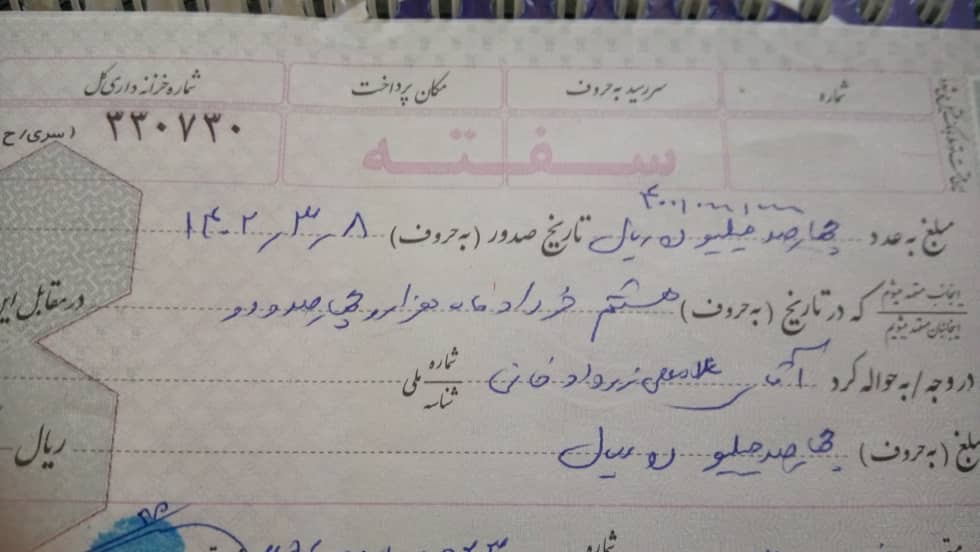 شماره سررسید به حروف مکان پرداخت شماره خزانه داری کل
سفته ۳۳۰۷۳۰ (سری/ح
۴۰۰/۰۰۰/۰۰۰
مبلغ به عدد چهارصد میلیون ریال تاریخ صدور (به حروف) ۱۴۰۲/۳/۸
اینجانب متعهد میشوم
اینجانبان متعهد میشویم
که در تاریخ (به حروف) هشتم خرداد ماه هزار و چهارصد و دو در مقابل این
در وجه/به حواله کرد آقای غلامعلی خانی شماره ملی شناسه
مبلغ (به حروف) چهارصد میلیون ریال ریال
شماره